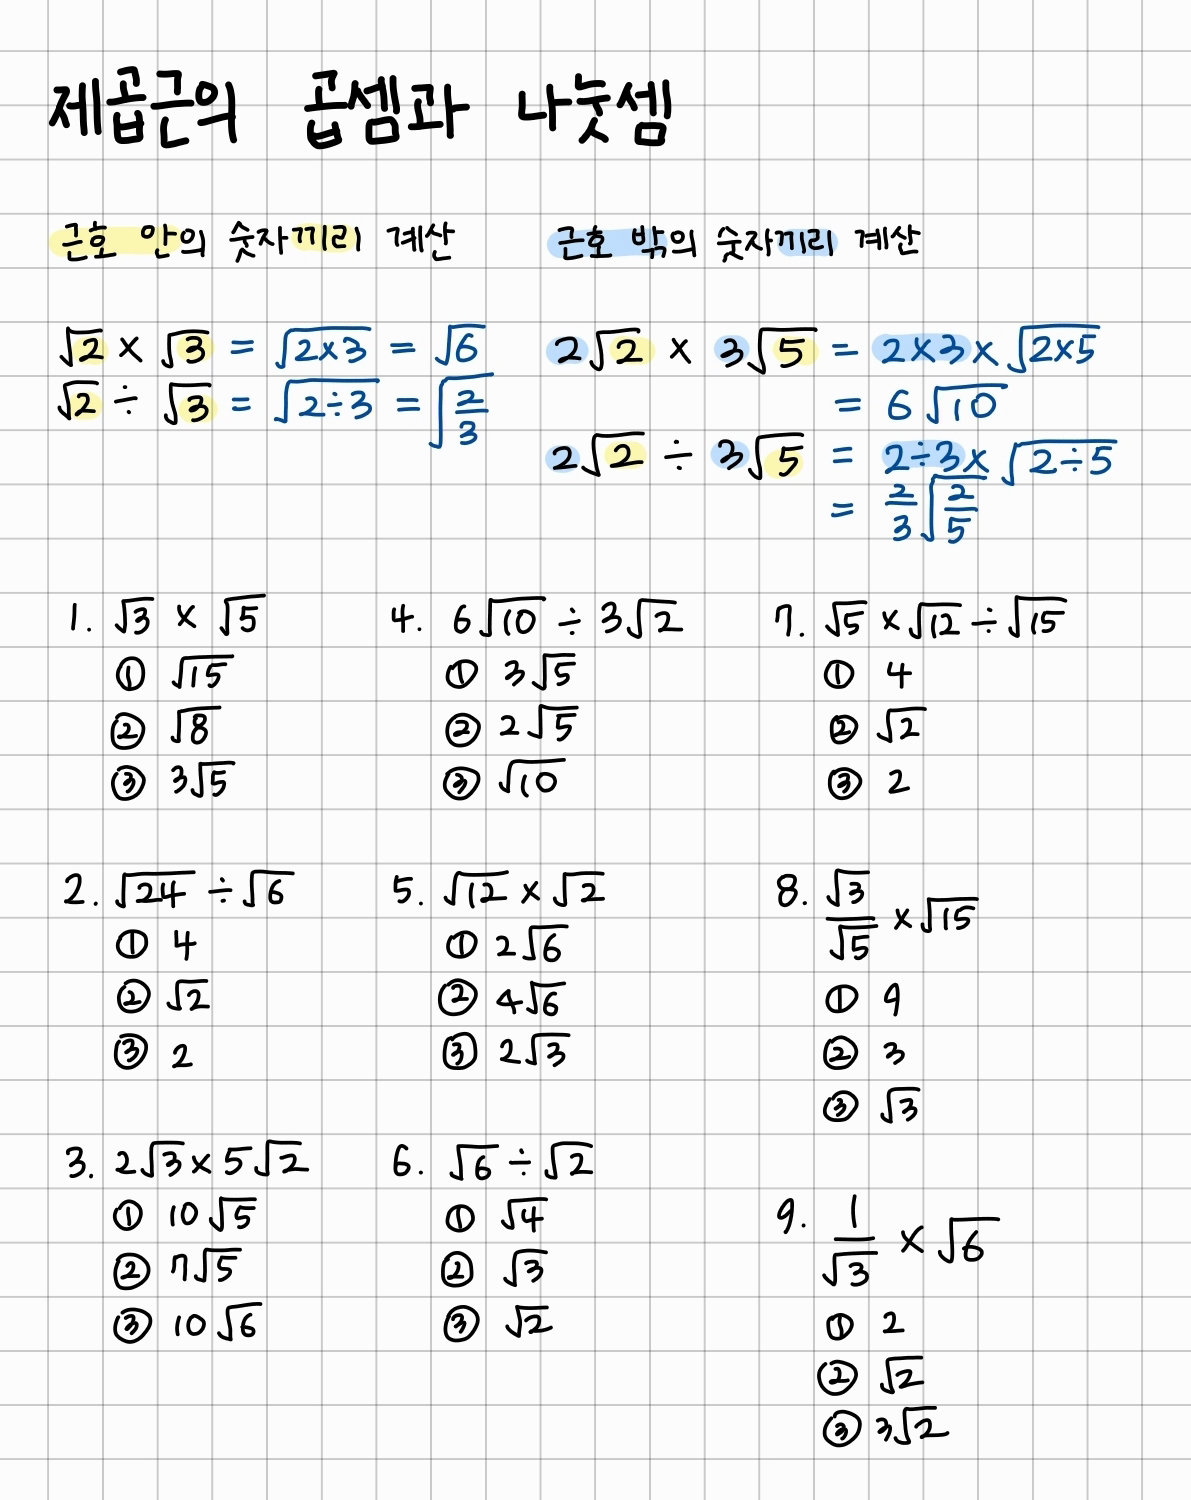 제곱근의 곱셈과 나눗셈
근호 안의 숫자끼리 계산
√2 × √3 = √(2×3) = √6
√2 ÷ √3 = √(2÷3) = √(2/3)
근호 밖의 숫자끼리 계산
2√2 × 3√5 = 2×3 × √(2×5)
= 6√10
2√2 ÷ 3√5 = 2÷3 × √(2÷5)
= 2/3 √(2/5)
1. √3 × √5
① √15
② √8
③ 3√5
2. √24 ÷ √6
① 4
② √2
③ 2
3. 2√3 × 5√2
① 10√5
② 7√5
③ 10√6
4. 6√10 ÷ 3√2
① 3√5
② 2√5
③ √10
5. √12 × √2
① 2√6
② 4√6
③ 2√3
6. √6 ÷ √2
① √4
② √3
③ √2
7. √5 × √12 ÷ √15
① 4
② √2
③ 2
8. √3/√5 × √15
① 9
② 3
③ √3
9. 1/√3 × √6
① 2
② √2
③ 3√2